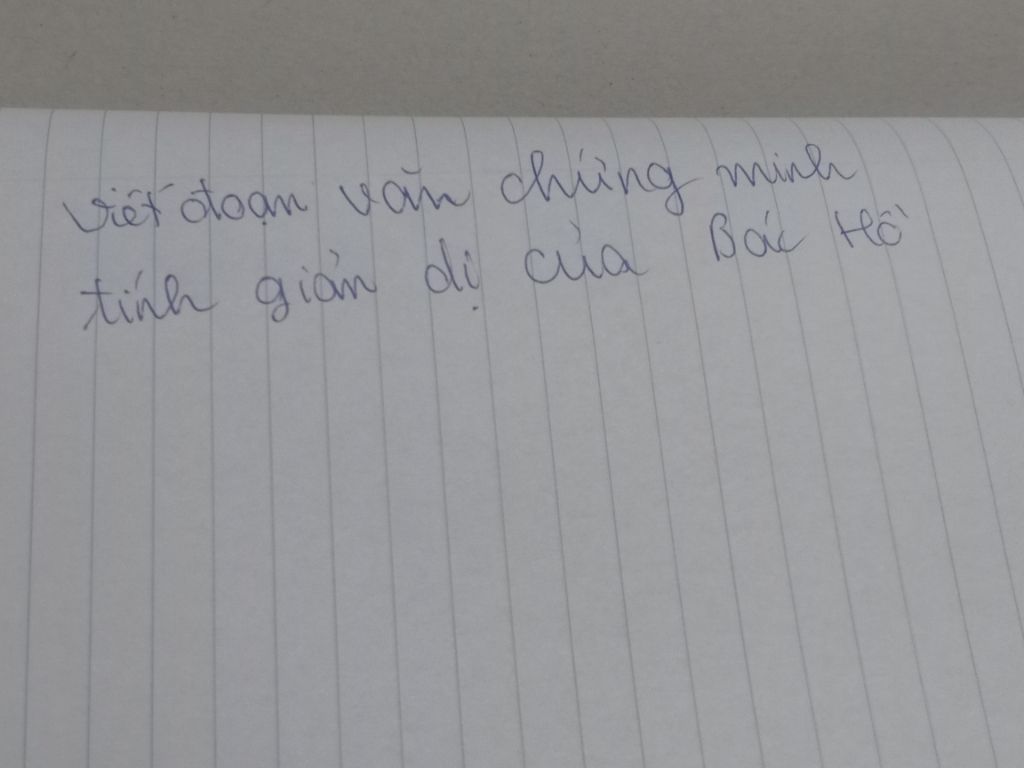 viết đoạn văn chứng minh
tính giản dị của Bác Hồ